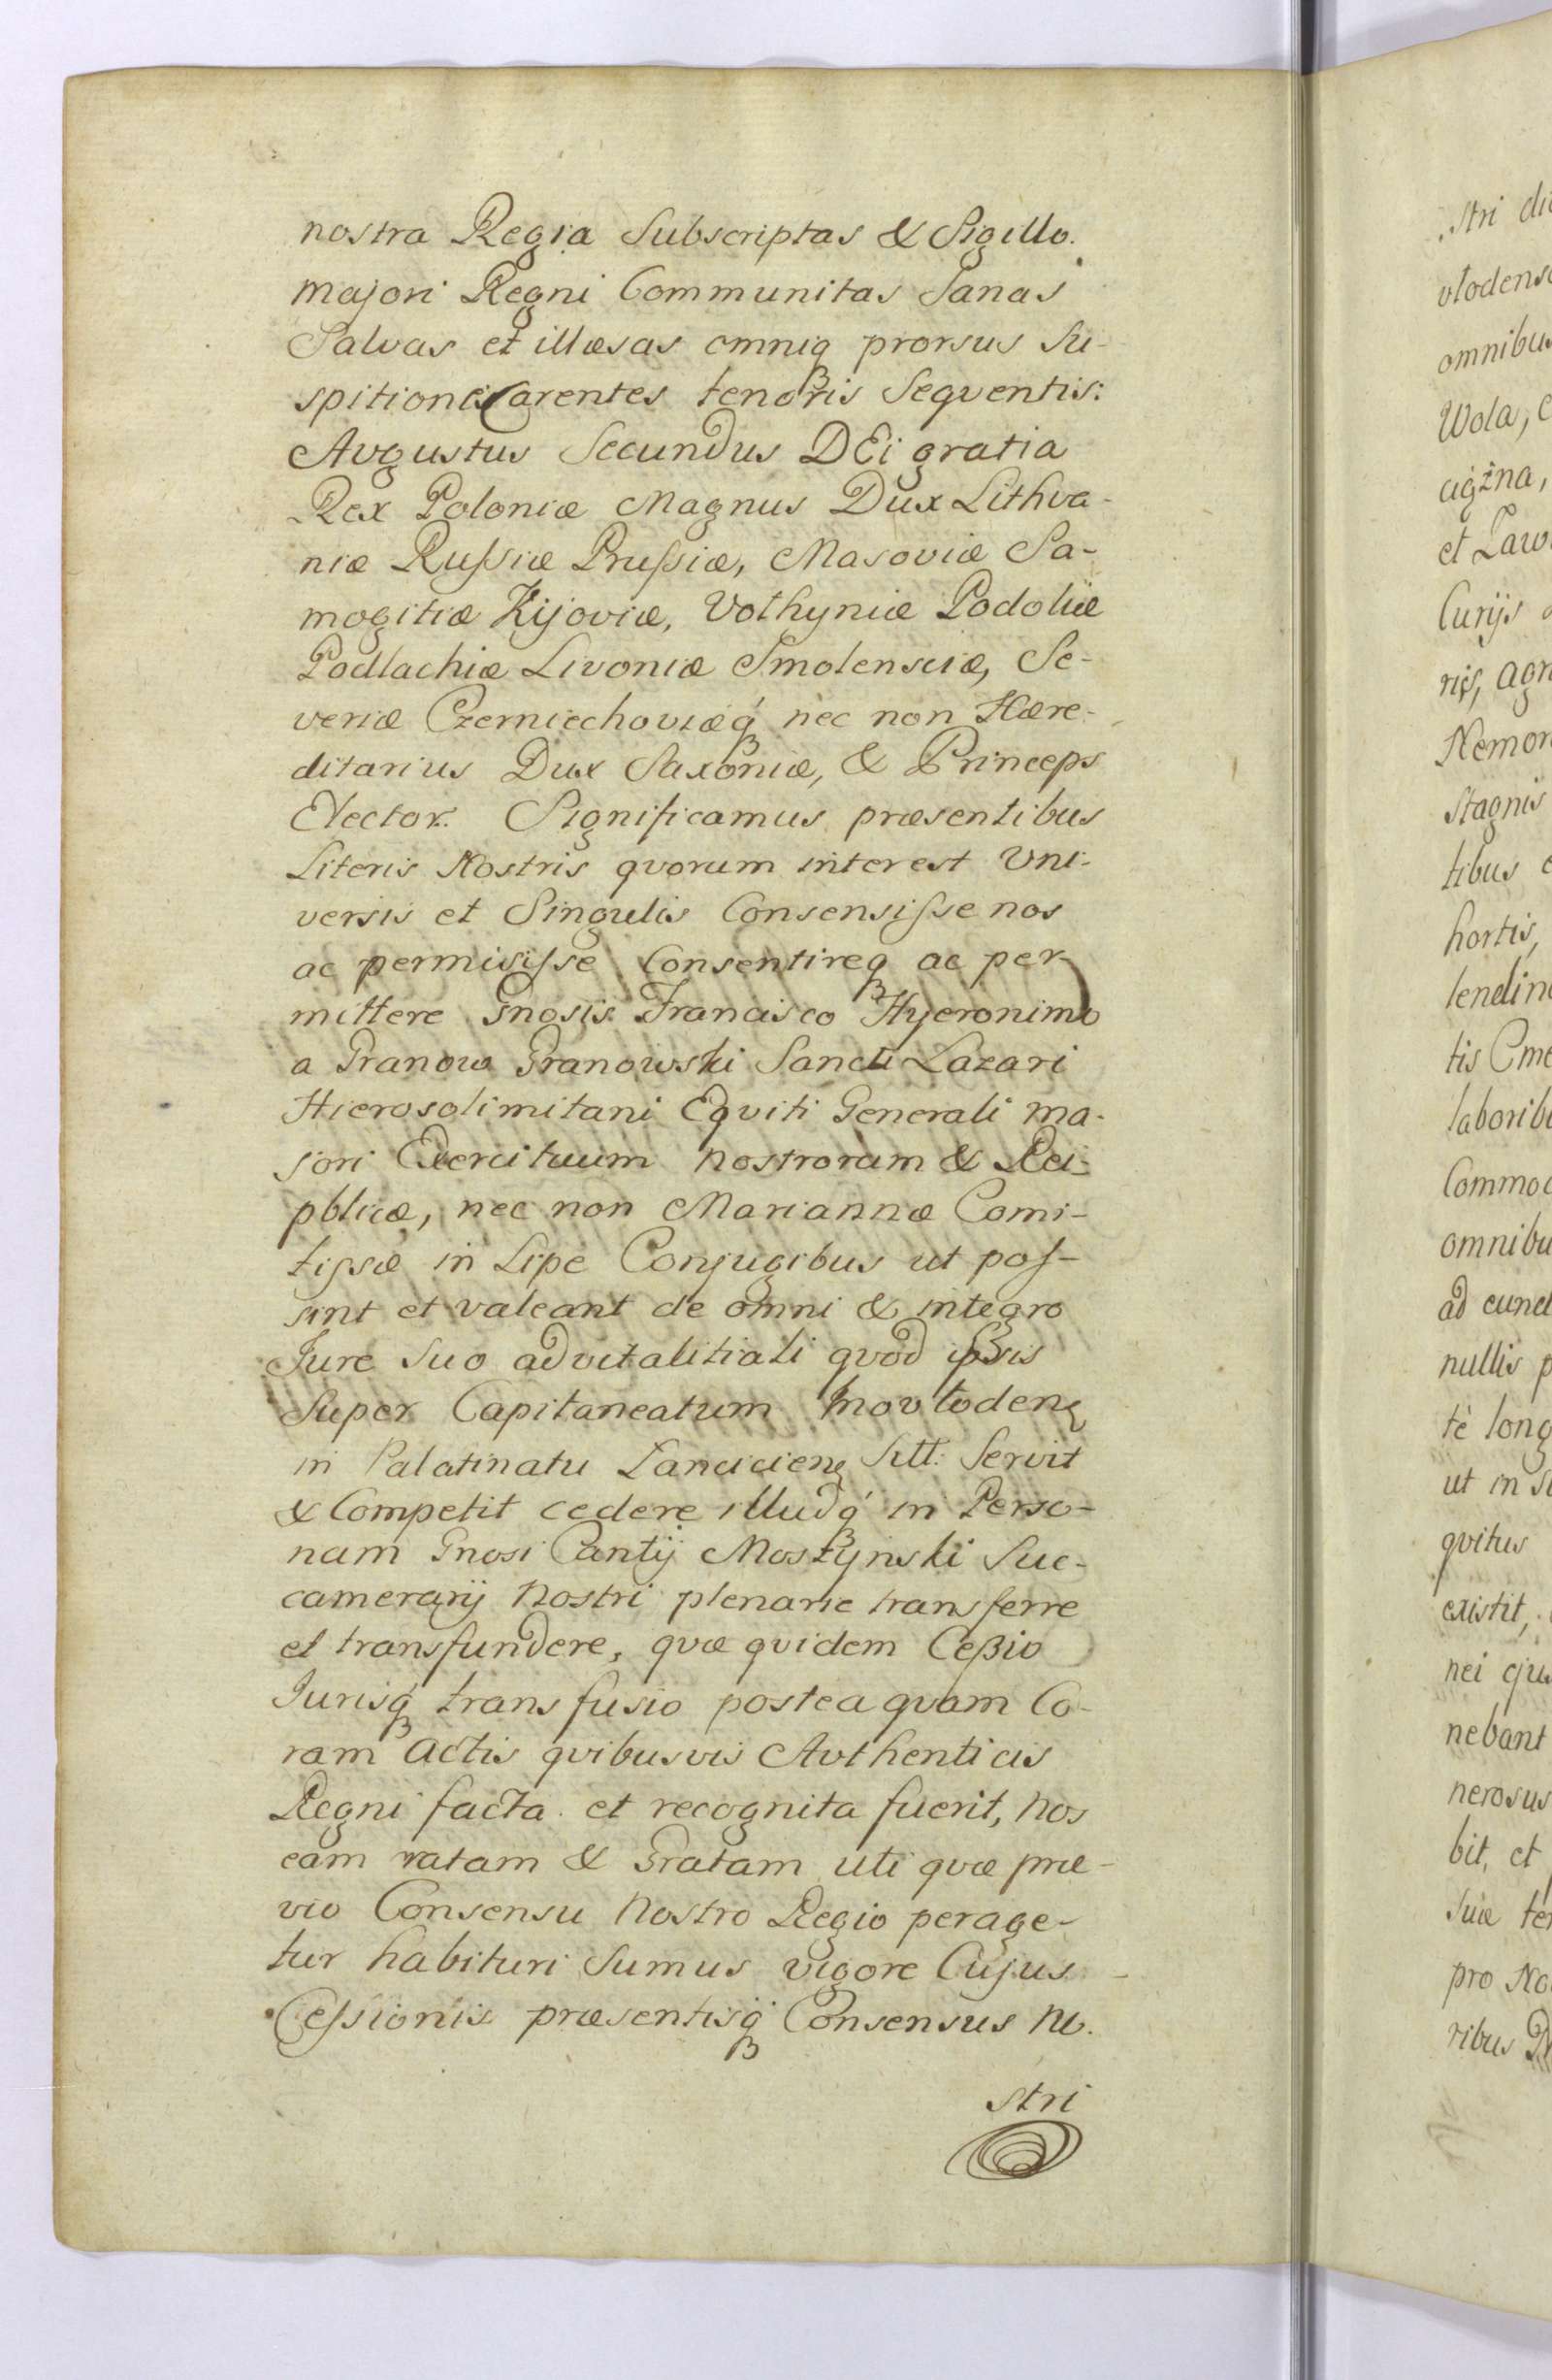 nostra Regia Subscriptas & Sigillo.
majori Regni Communitas Sanas
Salvas et illæsas omniq prorsus Su-
spitionis Carentes tenoris Seqventis:
Avgustus Secundus DEi gratia
Rex Poloniæ Magnus Dux Lithva-
niæ Rußiæ Prußiæ, Masoviæ Sa-
mogitiæ Kijoviæ, Vothyniæ Podoliæ
Podlachiæ Livoniæ Smolensciæ, Se-
veriæ Czerniechoviæq́ nec non Hære-
ditarius Dux Saxoniæ, & Princeps
Elector. Significamus præsentibus
Literis Nostris qvorum interest Vni-
versis et Singulis Consensiſse nos
ac permisiſse Consentireq ac per
mittere Gnosis Francisco Hyeronimo
a Granow Granowski Sancti Lazari
Hierosolimitani Eqviti Generali ma-
jori Exercituum nostroram & Rei-
pblicæ, nec non Mariannæ Comi-
tiſsæ in Lipe Conjugibus ut poſ-
sint et valeant de omni & integro
Jure Suo advitalitiali qvod ipsis
Super Capitaneatum Inovłodeną
in Palatinatu Lancicieną Sitt: Servit
& Competit cedere illudq́ in Perso-
nam Gnosi Cantij Moszÿnski Suc-
camerarij Nostri plenarie transferre
et transfundere, qvæ qvidem Ceßio
Jurisq́ transfusio postea qvam Co-
ram Actis qvibusvis Avthenticis
Regni facta et recognita fuerit, Nos
eam ratam & Gratam uti qvæ præ-
vio Consensu Nostro Regio perage-
tur habituri Sumus vigore Cujus
Ceſsionis præsentisq́ Consensus No.
stri
.stri
omnibus
Wola,
et
Curijs
Stagnis
tibus
hortis,
tis
omnibu
nullis
ut in
qvitus
existit,
nebant
nerosus
bit, et
pro
ribus